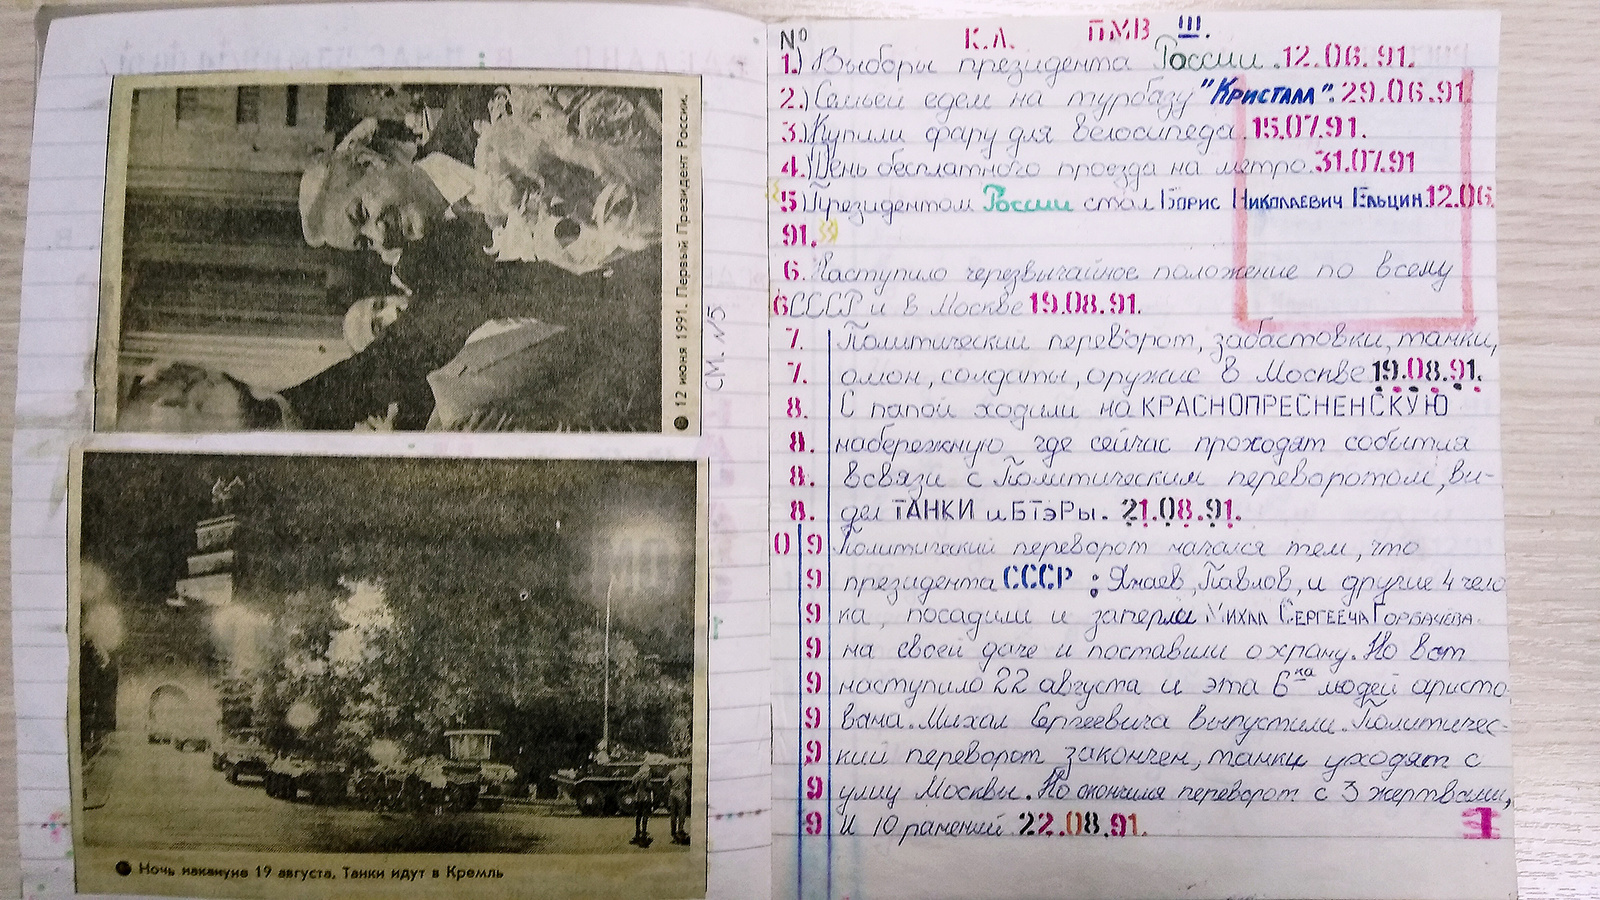 12 июня 1991. Первый Президент России.
СМ. №5
Ночь накануне 19 августа. Танки идут в Кремль
№ К.А. ПМВ III.
1.) Выборы президента России. 12.06.91.
2.) Семьей едем на турбазу "Кристалл". 29.06.91
3.) Купили фару для велосипеда. 15.07.91.
4.) День бесплатного проезда на метро. 31.07.91
5) Президентом России стал Борис Николаевич Ельцин. 12.06.
91.
6. Наступило черезвычайное положение по всему
6 СССР и в Москве 19.08.91.
7. Политический переворот, забастовки, танки,
7. омон, солдаты, оружие в Москве 19.08.91.
8. С папой ходили на КРАСНОПРЕСНЕНСКУЮ
8. набережную, где сейчас проходят события
8. всвязи с Политическим переворотом, ви-
8. дел ТАНКИ и БТэРы. 21.08.91.
0 9 Политический переворот начался тем, что
9 президента СССР: Янаев, Павлов, и другие 4 чело
9 ка, посадили и заперли Михал Сергееча Горбачева
9 на своей даче и поставили охрану. Но вот
9 наступило 22 августа и эта 6ка людей аристо
9 вана. Михал Сергеевича выпустили. Политичес-
9 кий переворот закончен, танки уходят с
9 улиц Москвы. Но окончился переворот с 3 жертвами,
9 и 10 ранений 22.08.91. 1